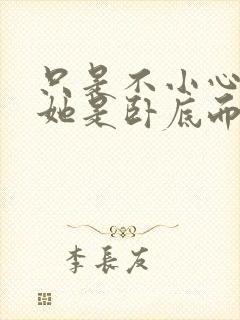 只是不小心
她是卧底而
李長友